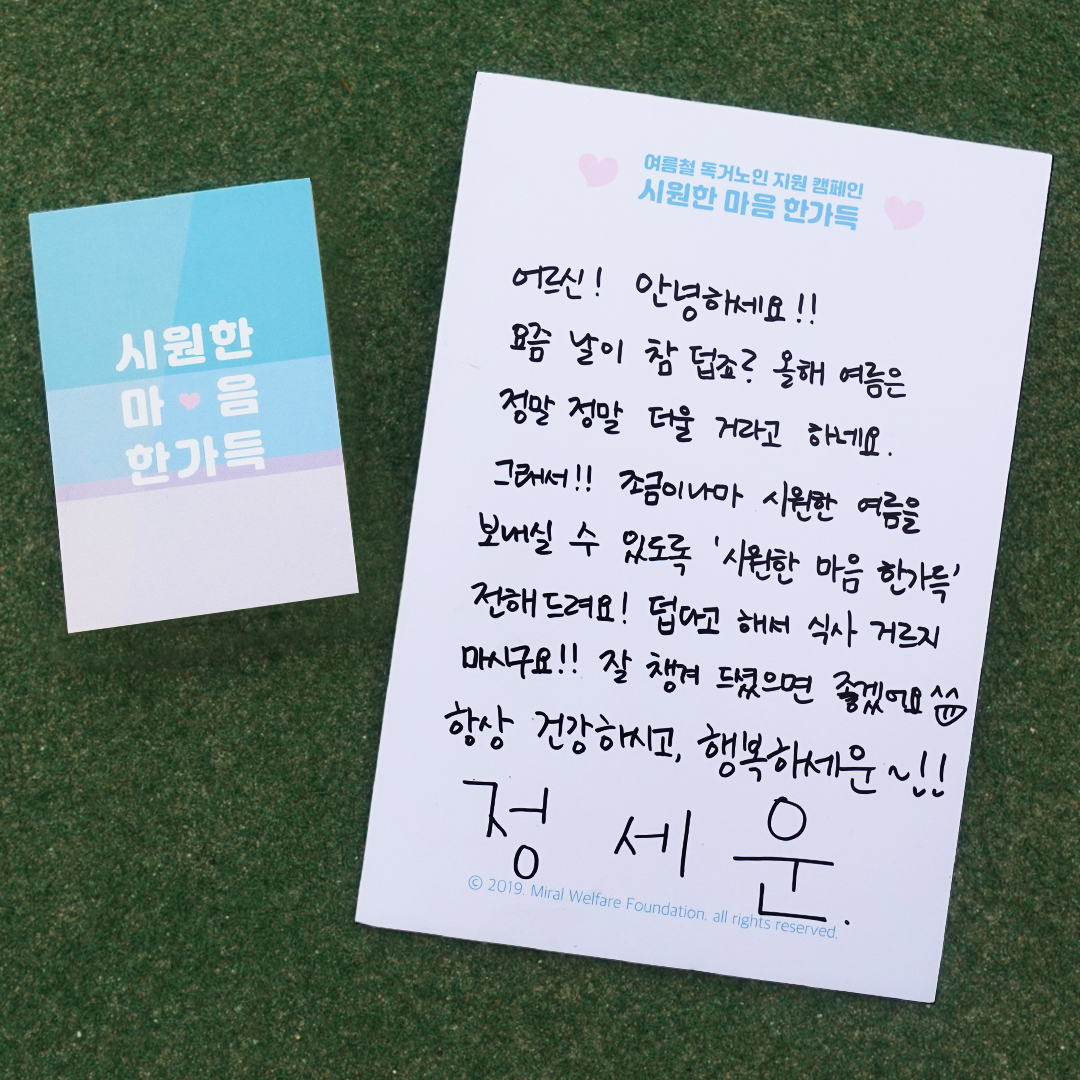 시원한
마 음
한가득
여름철 독거노인 지원 캠페인
시원한 마음 한가득
어르신! 안녕하세요!!
요즘 날이 참 덥죠? 올해 여름은
정말 정말 더울 거라고 하네요.
그래서!! 조금이나마 시원한 여름을
보내실 수 있도록 '시원한 마음 한가득'
전해드려요! 덥다고 해서 식사 거르지
마시구요!! 잘 챙겨 드셨으면 좋겠어요^^
항상 건강하시고, 행복하세운~!!
정 세 운.
© 2019. Miral Welfare Foundation. all rights reserved.